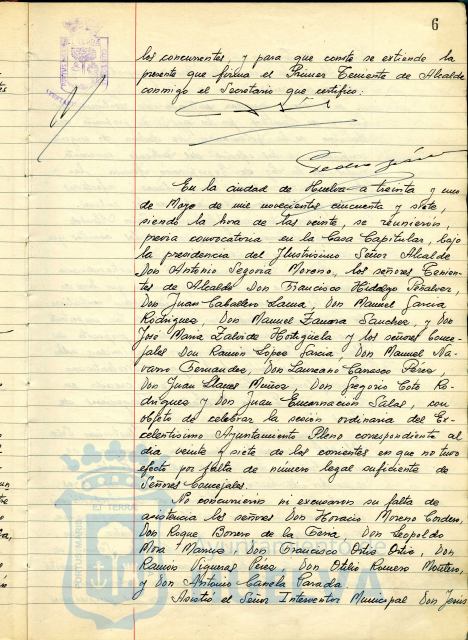 6
los concurrentes y para que conste se extiende la
presente que firma el Primer Teniente de Alcalde
conmigo el Secretario que certifico:
Pedro
En la ciudad de Huelva a treinta y uno
de Mayo de mil novecientos cincuenta y siete,
siendo la hora de las veinte, se reunieron,
previa convocatoria en la Casa Capitular, bajo
la presidencia del Ilustrísimo Señor Alcalde
Don Antonio Segovia Moreno, los señores Tenien-
tes de Alcalde Don Francisco Hidalgo Peñalver,
Don Juan Caballero Lama, Don Manuel García
Rodríguez, Don Manuel Zamora Sanchez, y Don
José María Zalvide Hortigüela y los señores Conce-
jales Don Ramón López García, Don Manuel Na-
varro Fernandez, Don Laureano Carrasco Pérez,
Don Juan Llanes Muñoz, Don Gregorio Cote Ro-
dríguez y Don Juan Encarnación Salas, con
objeto de celebrar la sesión ordinaria del Ex-
celentísimo Ayuntamiento Pleno correspondiente al
dia veinte y siete de los corrientes en que no tuvo
efecto por falta de número legal suficiente de
Señores Concejales.
No concurrieron ni excusaron su falta de
asistencia los señores Don Horacio Moreno Cordero,
Don Roque Borrero de la Feria, Don Leopoldo
Mora Don Francisco Ortiz Ortiz, Don
Ramón Vigueras Pérez, Don Otilio Romero Montero,
y Don Antonio Canela Parada.
Asistió el Señor Interventor Municipal Don Jesús